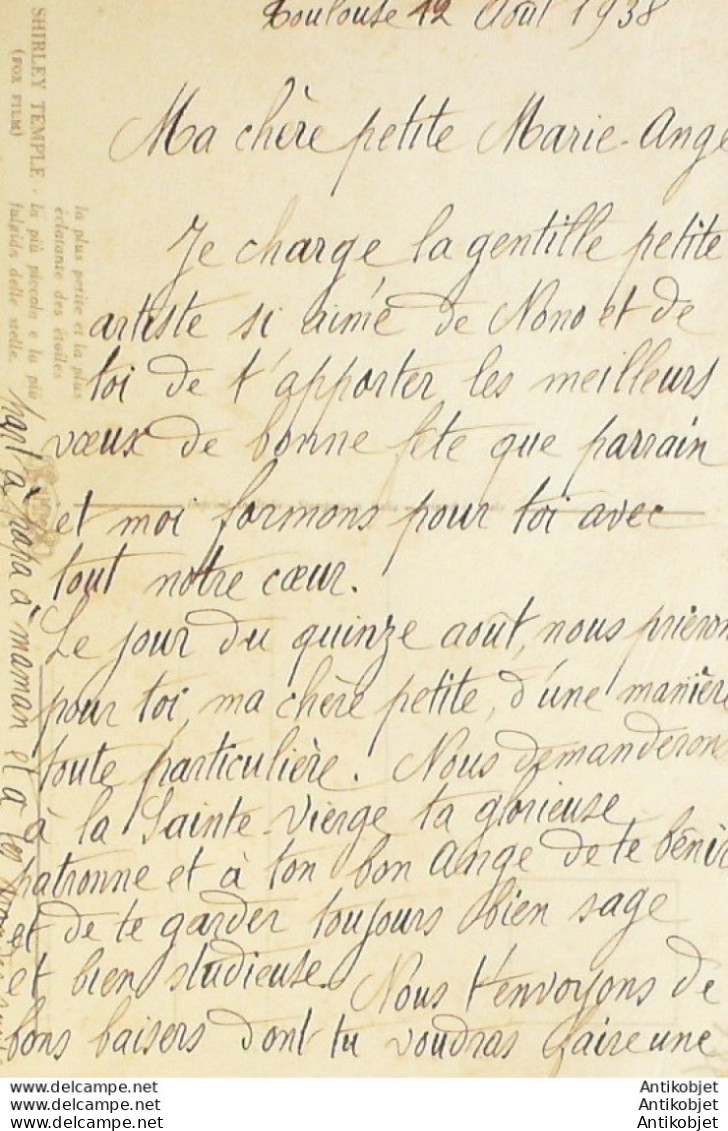 Toulouse 12 Août 1938
Ma chère petite Marie-Ange
Je charge la gentille petite
artiste si aimé de Nono et de
toi de t'apporter les meilleurs
vœux de bonne fête que parrain
et moi formons pour toi avec
tout notre cœur.
Le jour du quinze août, nous prieron
pour toi, ma chère petite, d'une manière
toute particulière. Nous demanderon
à la Sainte-Vierge ta glorieuse
patronne et à ton bon Ange de te bénir
et de te garder toujours bien sage
et bien studieuse. Nous t'envoyons de
bons baisers dont tu voudras faire une
part à papa à maman et à
SHIRLEY TEMPLE -
(FOX FILM)
la plus petite et la plus
éclatante des étoiles
la più piccola e la più
fulgida delle stelle.
www.delcampe.net
www.delcampe.net
www.delcampe.net
Antikobjet
Antikobjet
Antikobjet